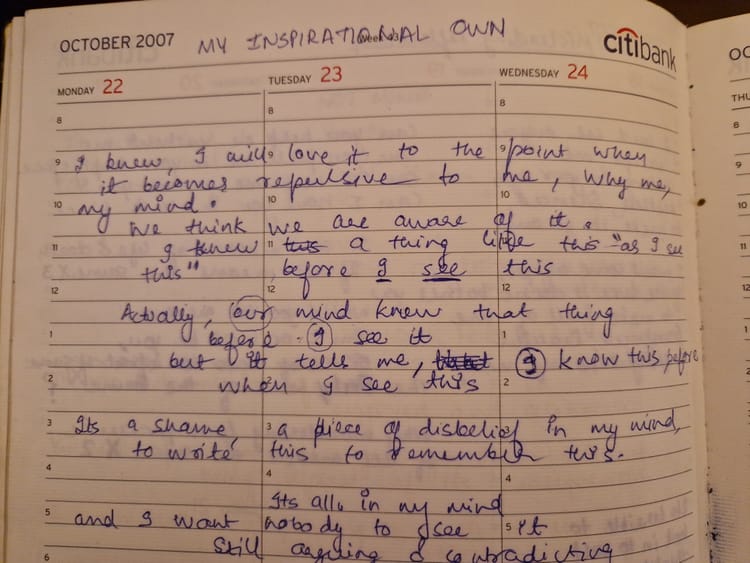 OCTOBER 2007 MY INSPIRATIONAL OWN citibank
MONDAY 22 TUESDAY 23 WEDNESDAY 24
8 8 8
9 I knew, I will 9 love it to the 9 point when
it becomes repulsive to me, why me,
10 my mind. 10 10
we think we are aware of it.
11 I knew 11 a thing like this "as I see
this" before I see this
12 12 12
Actually, our mind knew that thing
1 before I see it 1
but it tells me, I know this before
2 when I see this 2
3 Its a shame, 3 a piece of disbelief in my mind,
to write this to remember this.
4 4 4
Its all. in my mind
5 and I want nobody to see 5 it
6 still arguing & contradicting
OC
THU
8
9
10
11
12
1
2
3
4
5
6